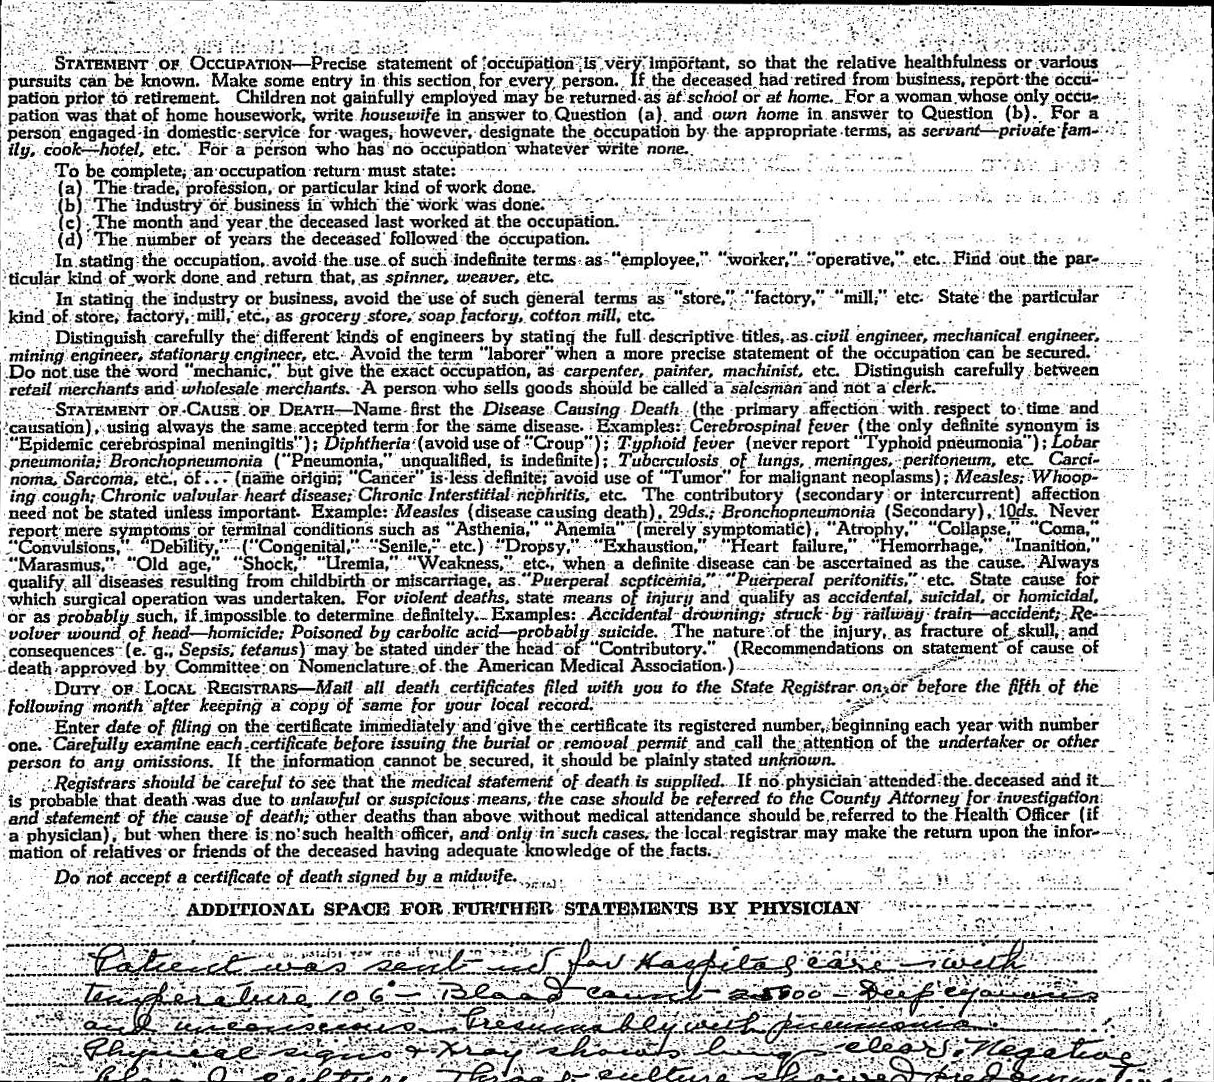 STATEMENT OF OCCUPATION—Precise statement of occupation is very important, so that the relative healthfulness or various
pursuits can be known. Make some entry in this section for every person. If the deceased had retired from business, report the occu-
pation prior to retirement. Children not gainfully employed may be returned as at school or at home. For a woman whose only occu-
pation was that of home housework, write housewife in answer to Question (a) and own home in answer to Question (b). For a
person engaged in domestic service for wages, however, designate the occupation by the appropriate terms, as servant—private fam-
ily, cook—hotel, etc. For a person who has no occupation whatever write none.
To be complete, an occupation return must state:
(a) The trade, profession, or particular kind of work done.
(b) The industry or business in which the work was done.
(c) The month and year the deceased last worked at the occupation.
(d) The number of years the deceased followed the occupation.
In stating the occupation, avoid the use of such indefinite terms as "employee," "worker," "operative," etc. Find out the par-
ticular kind of work done and return that, as spinner, weaver, etc.
In stating the industry or business, avoid the use of such general terms as "store," "factory," "mill," etc. State the particular
kind of store, factory, mill, etc., as grocery store, soap factory, cotton mill, etc.
Distinguish carefully the different kinds of engineers by stating the full descriptive titles, as civil engineer, mechanical engineer,
mining engineer, stationary engineer, etc. Avoid the term "laborer" when a more precise statement of the occupation can be secured.
Do not use the word "mechanic," but give the exact occupation, as carpenter, painter, machinist, etc. Distinguish carefully between
retail merchants and wholesale merchants. A person who sells goods should be called a salesman and not a clerk.
STATEMENT OF CAUSE OF DEATH—Name first the Disease Causing Death (the primary affection with respect to time and
causation), using always the same accepted term for the same disease. Examples: Cerebrospinal fever (the only definite synonym is
"Epidemic cerebrospinal meningitis"); Diphtheria (avoid use of "Croup"); Typhoid fever (never report "Typhoid pneumonia"); Lobar
pneumonia; Bronchopneumonia ("Pneumonia," unqualified, is indefinite); Tuberculosis of lungs, meninges, peritoneum, etc. Carci-
noma, Sarcoma, etc., of ... (name origin; "Cancer" is less definite; avoid use of "Tumor" for malignant neoplasms); Measles; Whoop-
ing cough; Chronic valvular heart disease; Chronic Interstitial nephritis, etc. The contributory (secondary or intercurrent) affection
need not be stated unless important. Example: Measles (disease causing death), 29ds.; Bronchopneumonia (Secondary), 10ds. Never
report mere symptoms or terminal conditions such as "Asthenia," "Anemia" (merely symptomatic), "Atrophy," "Collapse," "Coma,"
"Convulsions," "Debility," ("Congenital," "Senile," etc.) "Dropsy," "Exhaustion," "Heart failure," "Hemorrhage," "Inanition,"
"Marasmus," "Old age," "Shock," "Uremia," "Weakness," etc., when a definite disease can be ascertained as the cause. Always
qualify all diseases resulting from childbirth or miscarriage, as "Puerperal septicemia," "Puerperal peritonitis," etc. State cause for
which surgical operation was undertaken. For violent deaths, state means of injury and qualify as accidental, suicidal, or homicidal,
or as probably such, if impossible to determine definitely. Examples: Accidental drowning; struck by railway train—accident; Re-
volver wound of head—homicide; Poisoned by carbolic acid—probably suicide. The nature of the injury, as fracture of skull, and
consequences (e. g., Sepsis, tetanus) may be stated under the head of "Contributory." (Recommendations on statement of cause of
death approved by Committee on Nomenclature of the American Medical Association.)
DUTY OF LOCAL REGISTRARS—Mail all death certificates filed with you to the State Registrar on or before the fifth of the
following month after keeping a copy of same for your local record.
Enter date of filing on the certificate immediately and give the certificate its registered number, beginning each year with number
one. Carefully examine each certificate before issuing the burial or removal permit and call the attention of the undertaker or other
person to any omissions. If the information cannot be secured, it should be plainly stated unknown.
Registrars should be careful to see that the medical statement of death is supplied. If no physician attended the deceased and it
is probable that death was due to unlawful or suspicious means, the case should be referred to the County Attorney for investigation
and statement of the cause of death; other deaths than above without medical attendance should be referred to the Health Officer (if
a physician), but when there is no such health officer, and only in such cases, the local registrar may make the return upon the infor-
mation of relatives or friends of the deceased having adequate knowledge of the facts.
Do not accept a certificate of death signed by a midwife.
ADDITIONAL SPACE FOR FURTHER STATEMENTS BY PHYSICIAN
Patient was sent in for Hospital care with
temperature 106° - Blood count - Deep cyanosis
and unconscious. Presumably with pneumonia.
Physical signs & Xray shows lungs clear. Negative
blood culture. Throat culture showed